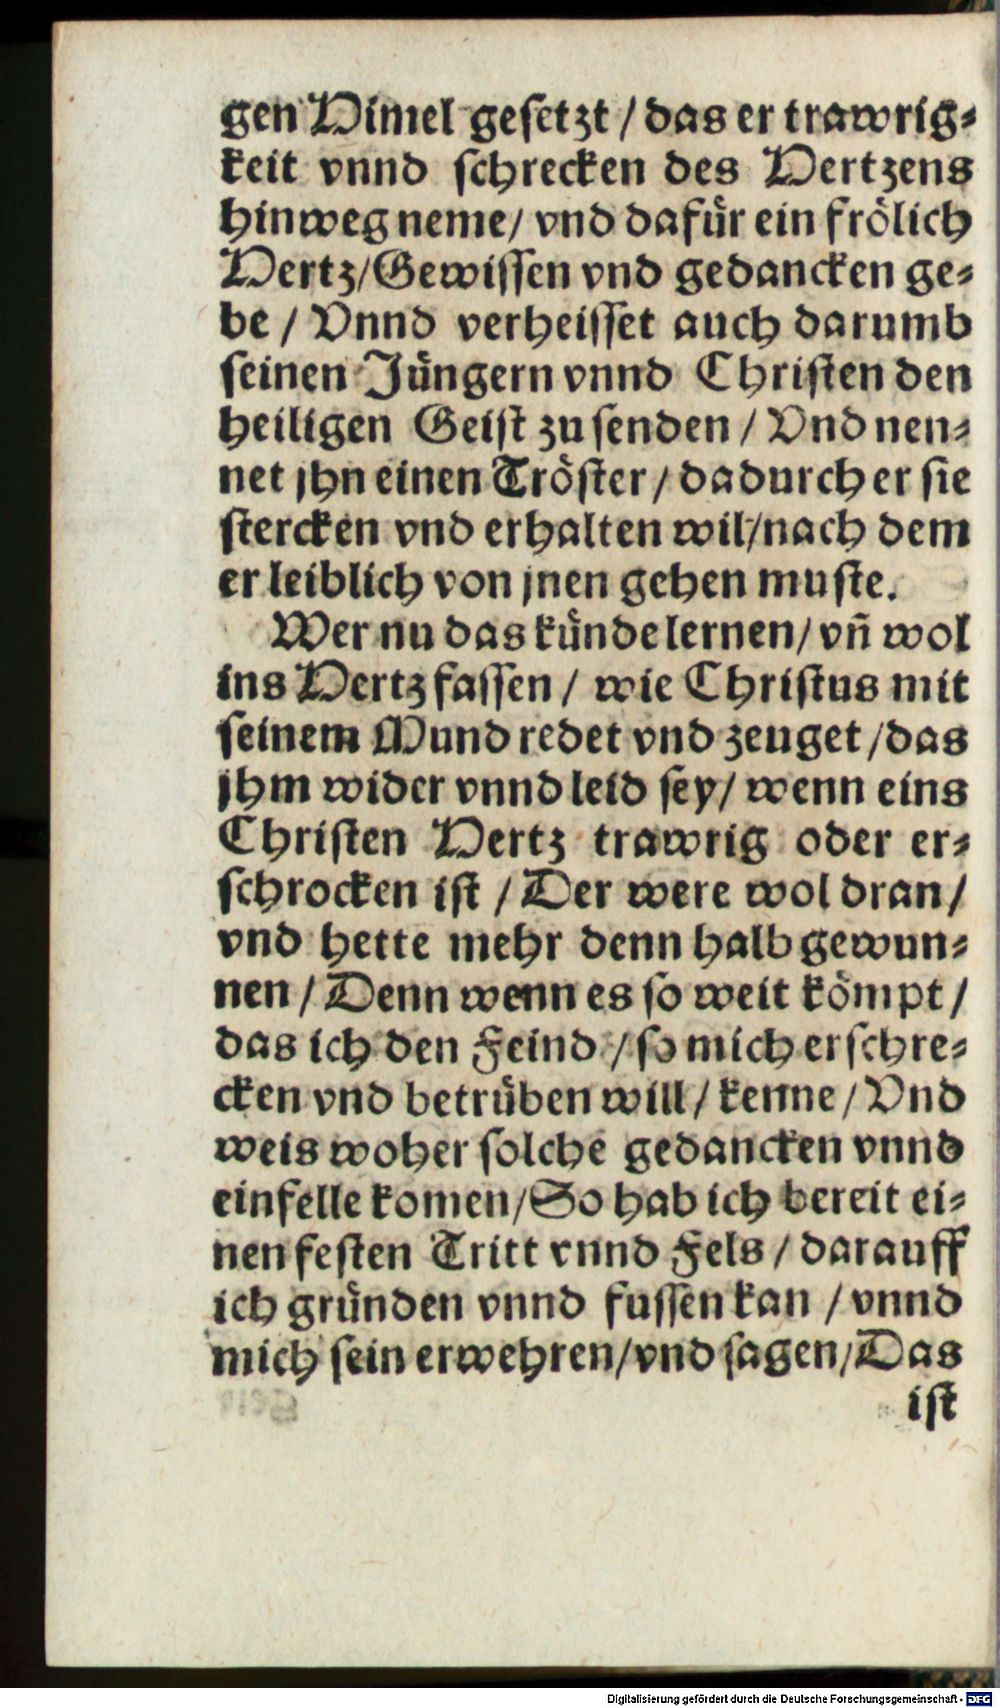 gen Himel gesetzt / das er trawrig-
keit vnnd schrecken des Hertzens
hinweg neme / vnd dafür ein frölich
Hertz / Gewissen vnd gedancken ge-
be / Vnnd verheisset auch darumb
seinen Jüngern vnnd Christen den
heiligen Geist zu senden / Vnd nen-
net jhn einen Tröster / dadurch er sie
stercken vnd erhalten wil / nach dem
er leiblich von jnen gehen muste.
Wer nu das künde lernen / vñ wol
ins Hertz fassen / wie Christus mit
seinem Mund redet vnd zeuget / das
jhm wider vnnd leid sey / wenn eins
Christen Hertz trawrig oder er-
schrocken ist / Der were wol dran /
vnd hette mehr denn halb gewun-
nen / Denn wenn es so weit kömpt /
das ich den Feind / so mich erschre-
cken vnd betrüben will / kenne / Vnd
weis woher solche gedancken vnnd
einfelle komen / So hab ich bereit ei-
nen festen Tritt vnnd Fels / darauff
ich gründen vnnd fussen kan / vnnd
mich sein erwehren / vnd sagen / Das
ist
Digitalisierung gefördert durch die Deutsche Forschungsgemeinschaft - DFG